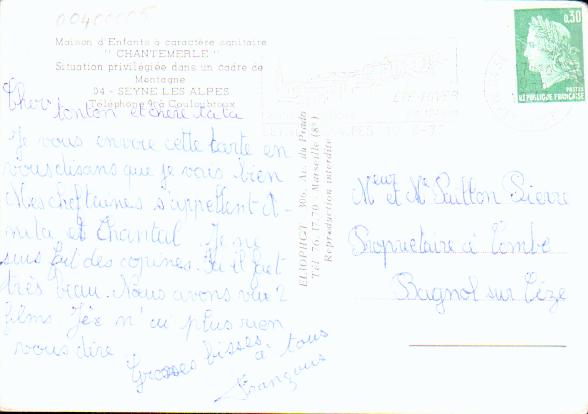 00400005
Maison d'Enfants à caractère sanitaire
" CHANTEMERLE "
Situation privilégiée dans un cadre de
Montagne
04 - SEYNE LES ALPES
Téléphone 9 à Couloubroux
Cher tonton et chère tata
Je vous envoie cette carte en
vous disans que je vais bien
Mes cheftaines s'appellent A-
nita et Chantal. Je me
suis fait des copines. Ici il fait
très beau. Nous avons vu 2
films. Je n'ai plus rien
vous dire
Grosses bisses à tous
Françoise
ELIOPHOT 306, Av. du Prado
Tél 76.17.70 - Marseille (8e)
Reproduction interdite
0,30
POSTES
REPUBLIQUE FRANÇAISE
ETE-HIVER
ALPES
Meur et Me Suitton Pierre
Propriétaire à Combe
Bagnol sur Cèze